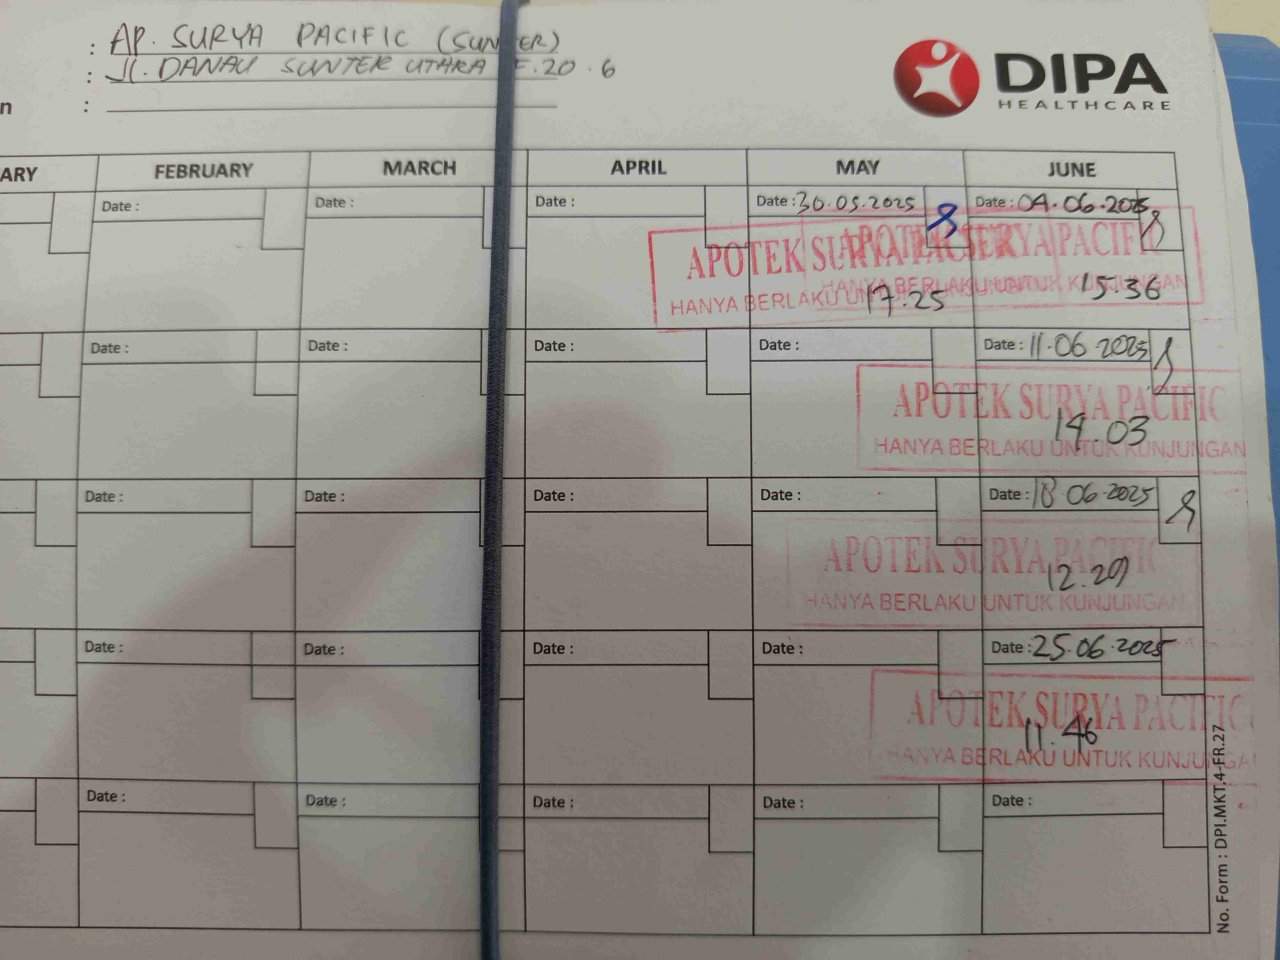 : AP. SURYA PACIFIC (SUNTER)
: Jl. DANAU SUNTER UTARA F.20.6
n :
DIPA
HEALTHCARE
ARY FEBRUARY MARCH APRIL MAY JUNE
Date : Date : Date : Date : 30.05.2025 Date : 04.06.2025
APOTEK SURYA PACIFIC APOTEK SURYA PACIFIC
HANYA BERLAKU UNTUK KUNJUNGAN HANYA BERLAKU UNTUK KUNJUNGAN
17.25 15.36
Date : Date : Date : Date : Date : 11.06.2025
APOTEK SURYA PACIFIC
HANYA BERLAKU UNTUK KUNJUNGAN
14.03
Date : Date : Date : Date : Date : 18.06.2025
APOTEK SURYA PACIFIC
HANYA BERLAKU UNTUK KUNJUNGAN
12.29
Date : Date : Date : Date : Date : 25.06.2025
APOTEK SURYA PACIFIC
HANYA BERLAKU UNTUK KUNJUNGAN
11.46
Date : Date : Date : Date : Date :
No. Form : DPI.MKT.4-FR.27